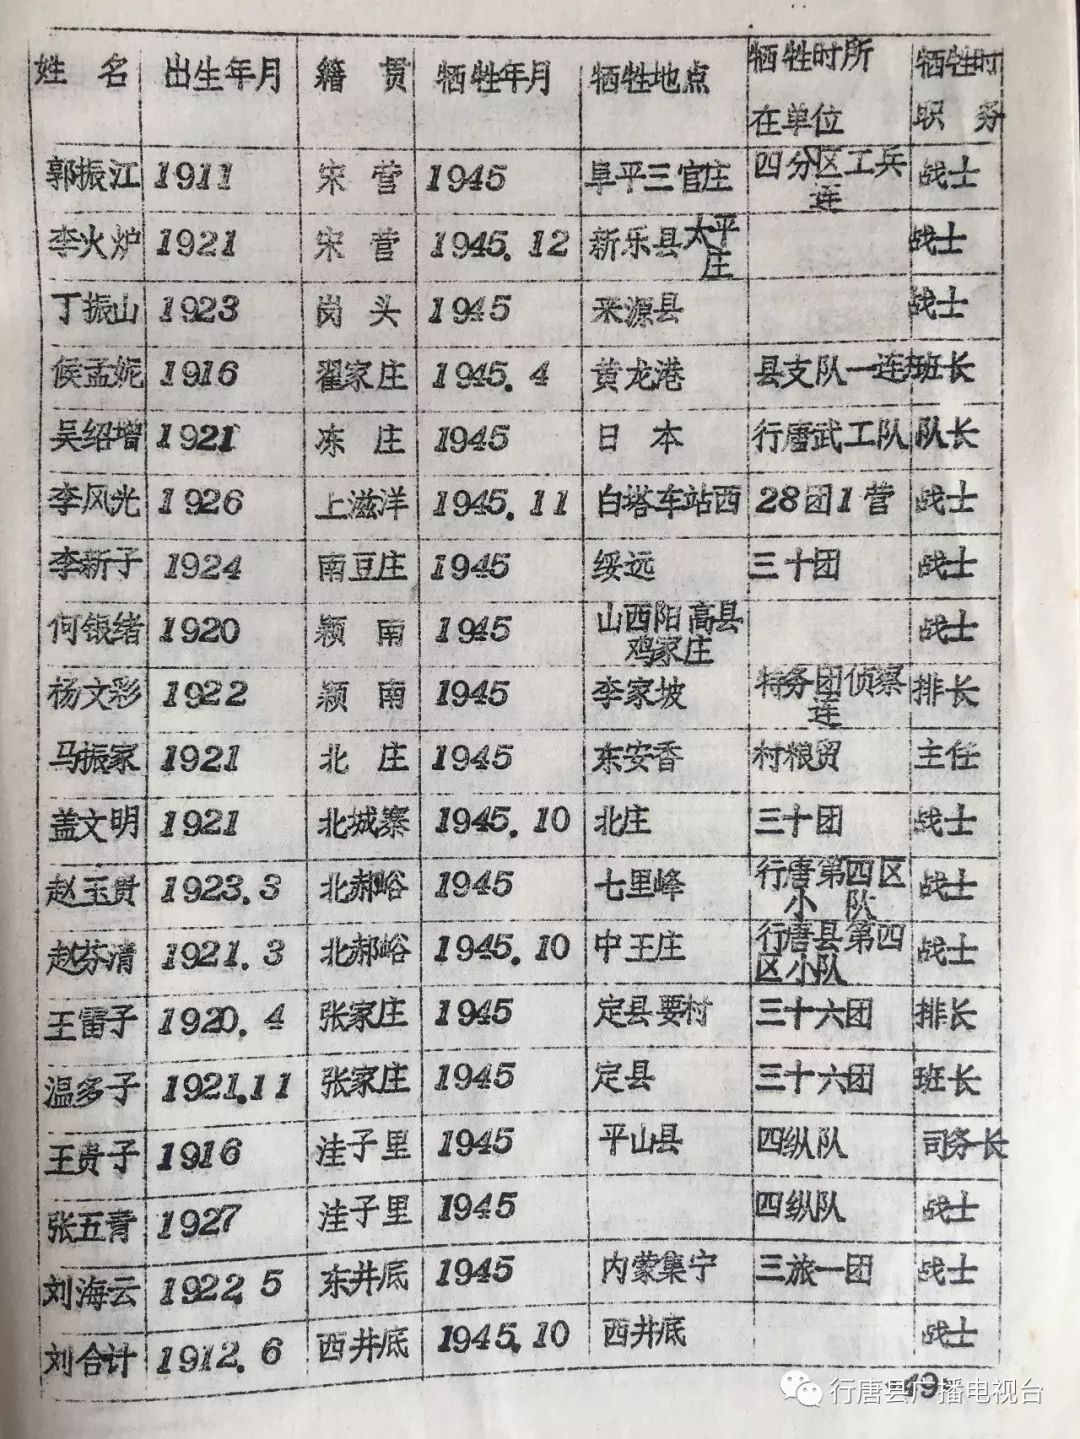 姓 名 出生年月 籍 贯 牺牲年月 牺牲地点 牺牲时所在单位 牺牲时职 务
郭振江 1911 宋 营 1945 阜平三官庄 四分区工兵连 战士
李火炉 1921 宋 营 1945.12 新乐县太平庄 战士
丁振山 1923 岗 头 1945 来源县 战士
侯孟妮 1916 翟家庄 1945.4 黄龙港 县支队一连 班长
吴绍增 1921 冻 庄 1945 日 本 行唐武工队 队长
李风光 1926 上滋洋 1945.11 白塔车站西 28团1营 战士
李新子 1924 南豆庄 1945 绥远 三十团 战士
何银绪 1920 颖 南 1945 山西阳高县鸡家庄 战士
杨文彩 1922 颖 南 1945 李家坡 特务团侦察连 排长
马振家 1921 北 庄 1945 东安香 村粮贸 主任
盖文明 1921 北城寨 1945.10 北庄 三十团 战士
赵玉贵 1923.3 北郝峪 1945 七里峰 行唐第四区小 队 战士
赵芬清 1921.3 北郝峪 1945.10 中王庄 行唐县第四区小队 战士
王雷子 1920.4 张家庄 1945 定县要村 三十六团 排长
温多子 1921.11 张家庄 1945 定县 三十六团 班长
王贵子 1916 洼子里 1945 平山县 四纵队 司务长
张五青 1927 洼子里 1945 四纵队 战士
刘海云 1922.5 东井底 1945 内蒙集宁 三旅一团 战士
刘合计 1912.6 西井底 1945.10 西井底 战士
·49·
行唐县广播电视台